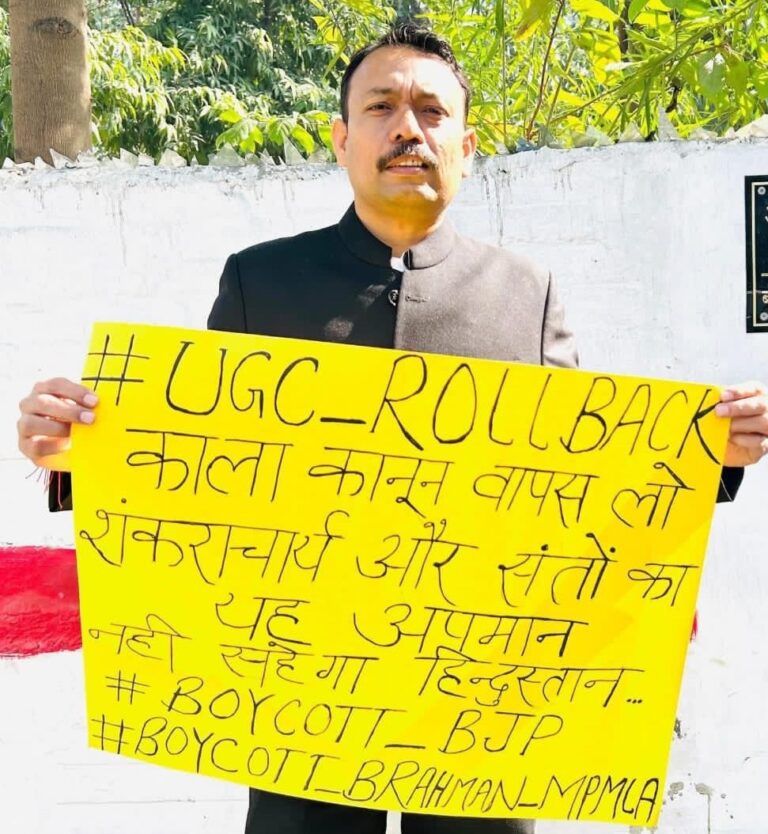 #UGC_ROLLBACK
काला कानून वापस लो
शंकराचार्य और संतों का
यह अपमान
नही सहेगा हिन्दुस्तान...
#BOYCOTT_BJP
#BOYCOTT_BRAHMAN_MPMLA